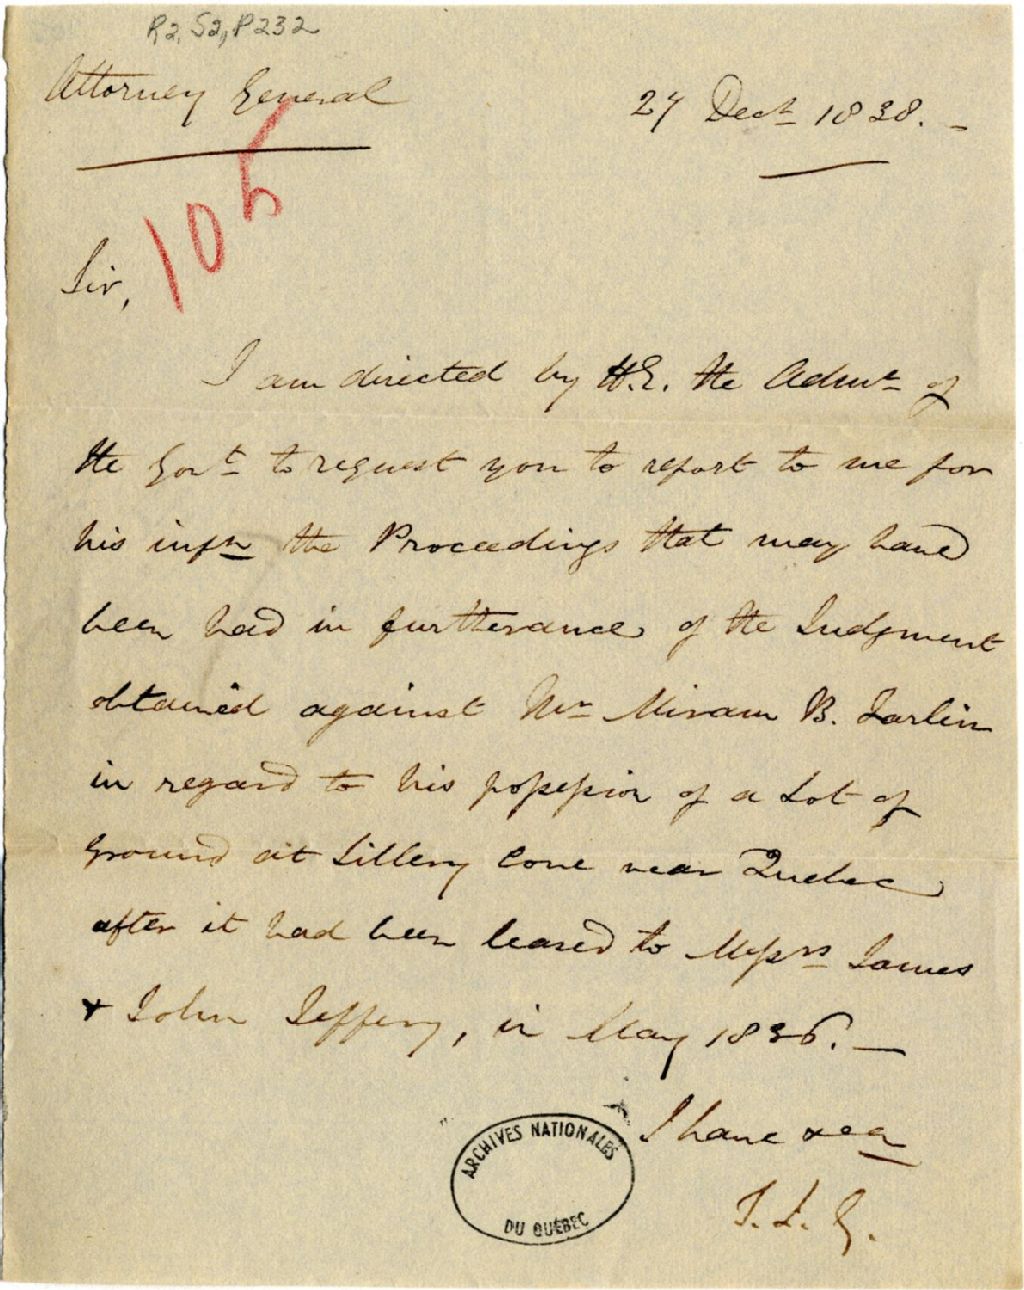 R2, S2, P232
Attorney General
27 Decr 1838. -
105
Sir,
I am directed by H.E. the Admr of
the Govt to request you to report to me for
his infn the Proceedings that may have
been had in furtherance of the Judgment
obtained against Mr Miram B. Jarlin
in regard to his possession of a Lot of
ground at Sillery Cove near Quebec
after it had been leased to Messrs James
& John Jeffery, in May 1836. -
I have &ca
T. L. G.
ARCHIVES NATIONALES
DU QUÉBEC